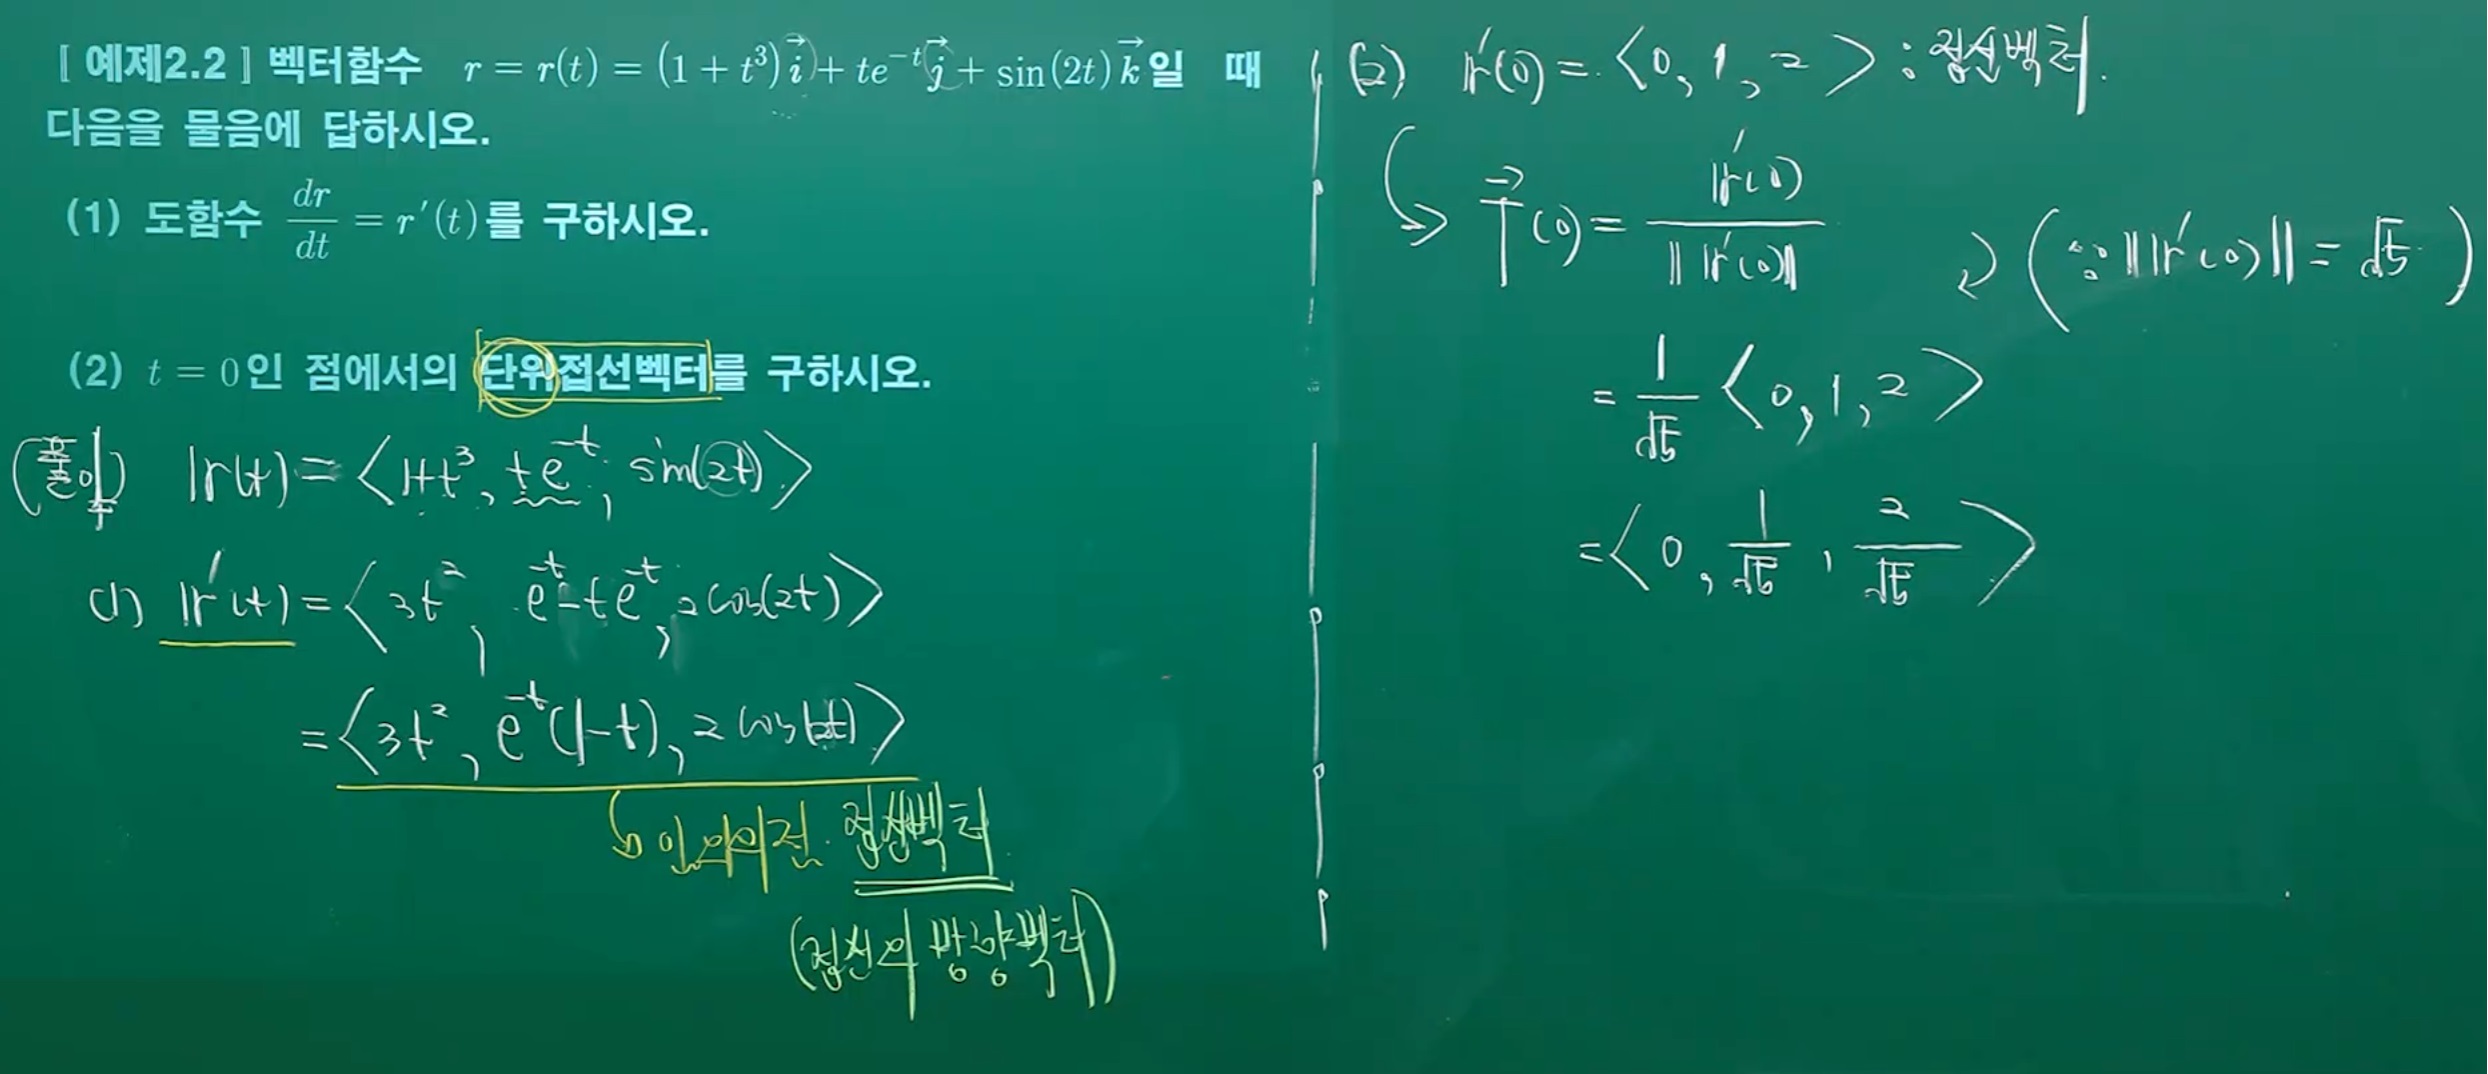 [ 예제2.2 ] 벡터함수 r = r(t) = (1 + t³)i⃗ + te⁻ᵗj⃗ + sin(2t)k⃗일 때
다음을 물음에 답하시오.
(1) 도함수 dr/dt = r′(t)를 구하시오.
(2) t = 0인 점에서의 단위접선벡터를 구하시오.
(풀이) r(t) = <1+t³, te⁻ᵗ, sin(2t)>
(1) r′(t) = <3t², e⁻ᵗ-te⁻ᵗ, 2cos(2t)>
= <3t², e⁻ᵗ(1-t), 2cos(2t)>
↳ 임의의 점 접선벡터
(접선의 방향벡터)
(2) r′(0) = <0, 1, 2> : 접선벡터.
T⃗(0) = r′(0)/‖r′(0)‖ (∵ ‖r′(0)‖ = √5)
= 1/√5 <0, 1, 2>
= <0, 1/√5, 2/√5>